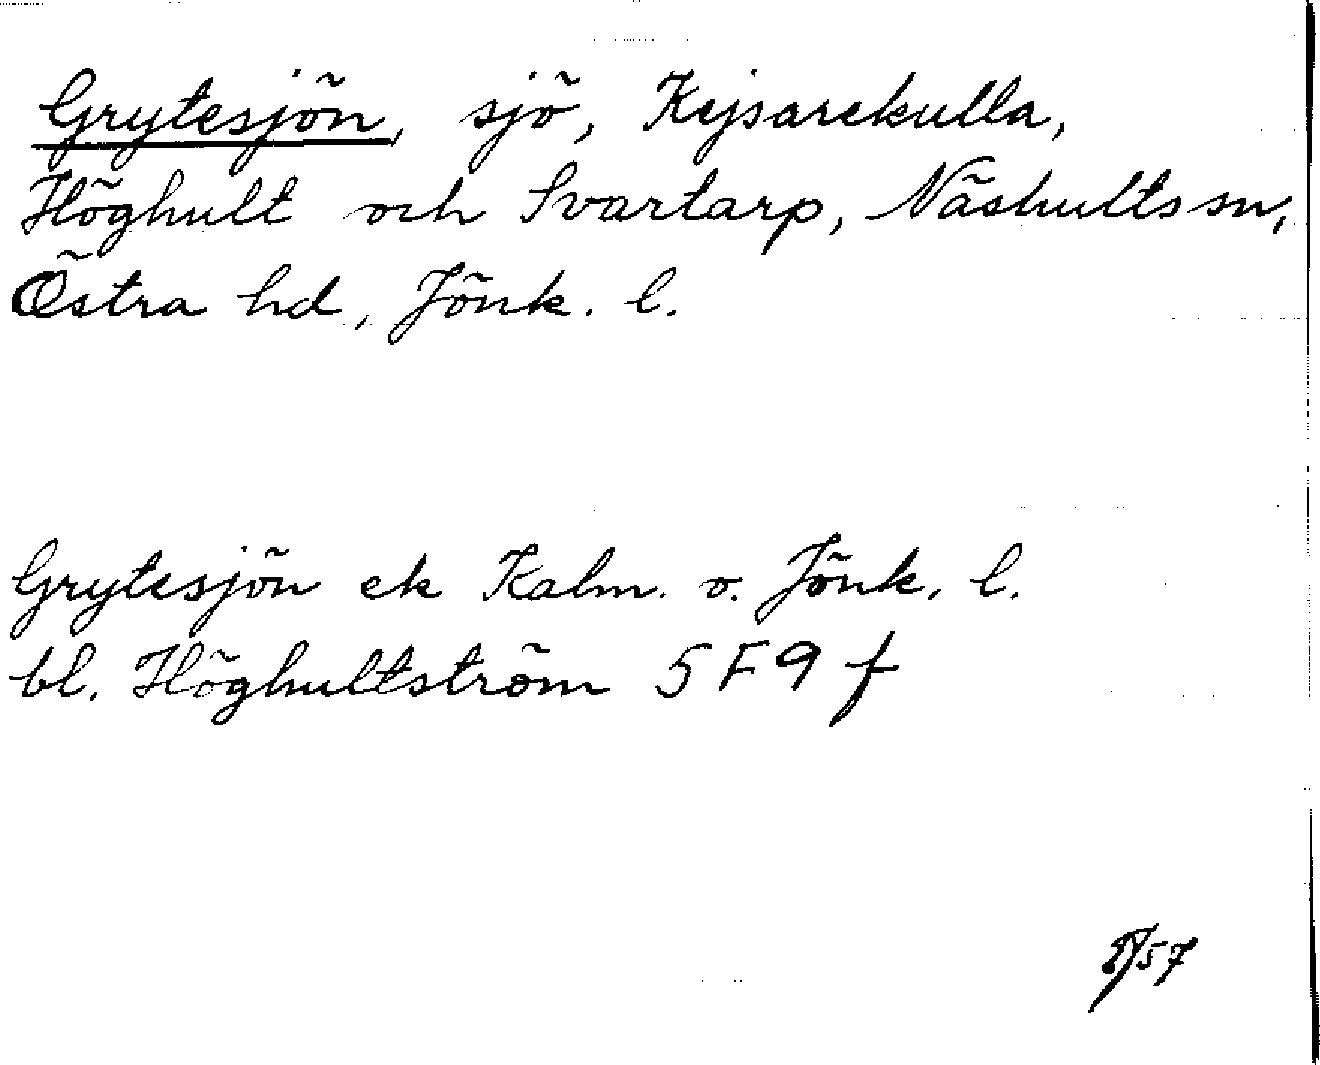 Grytesjön, sjö, Kejsarekulla,
Höghult och Svartarp, Näshults sn,
Östra hd, Jönk. l.
Grytesjön ek Kalm. o. Jönk. l.
bl. Höghultström 5F9f